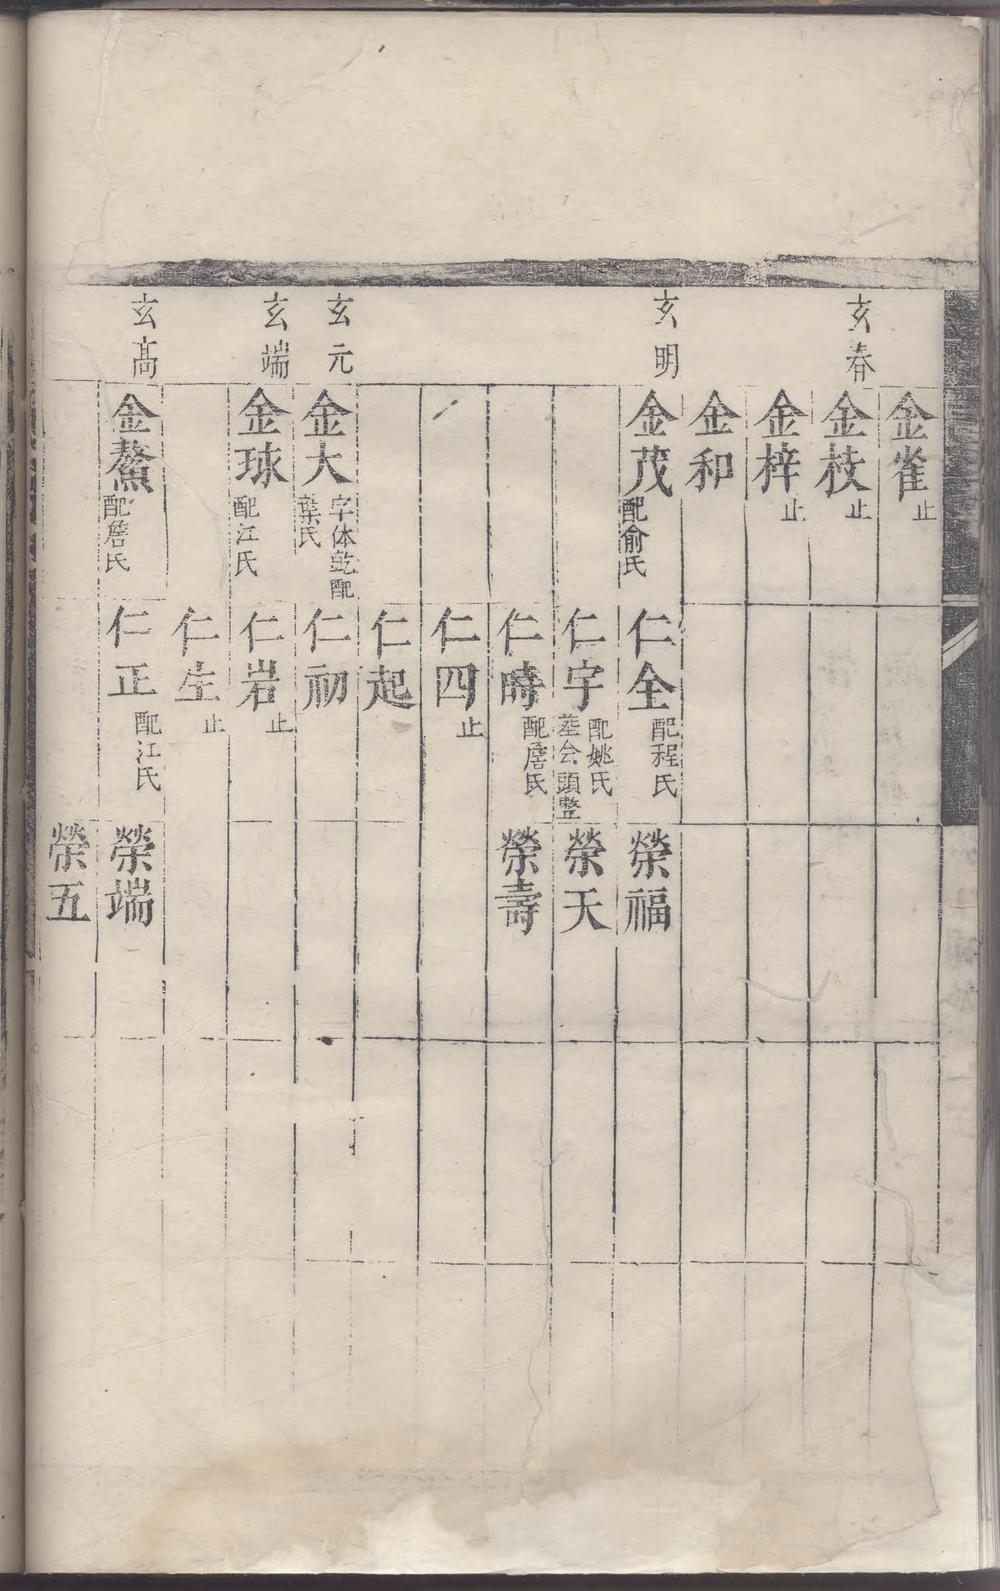 金雀止
玄春
金枝止
金梓止
金和
玄明
金茂配俞氏
仁全配程氏
榮福
仁字配姚氏
葬会頭整
榮天
仁時配詹氏
榮壽
仁四止
仁起
玄元
金大字体乾配
葉氏
仁初
玄端
金球配江氏
仁岩止
仁生止
玄高
金鰲配詹氏
仁正配江氏
榮端
榮五